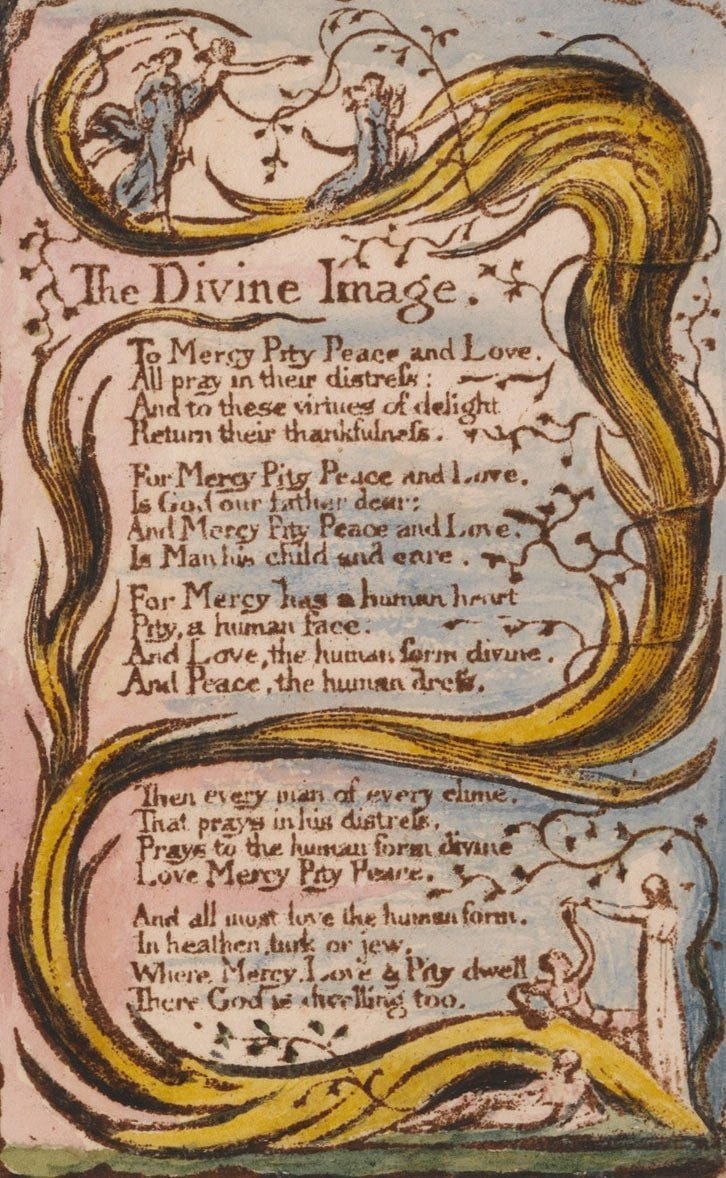 The Divine Image.
To Mercy Pity Peace and Love.
All pray in their distreſs:
And to these virtues of delight
Return their thankfulneſs.
For Mercy Pity Peace and Love.
Is God our father dear:
And Mercy Pity Peace and Love.
Is Man his child and care.
For Mercy has a human heart
Pity, a human face:
And Love, the human form divine.
And Peace, the human dreſs.
Then every man of every clime.
That prays in his distreſs.
Prays to the human form divine
Love Mercy Pity Peace.
And all must love the human form.
In heathen, turk or jew.
Where Mercy, Love & Pity dwell
There God is dwelling too.